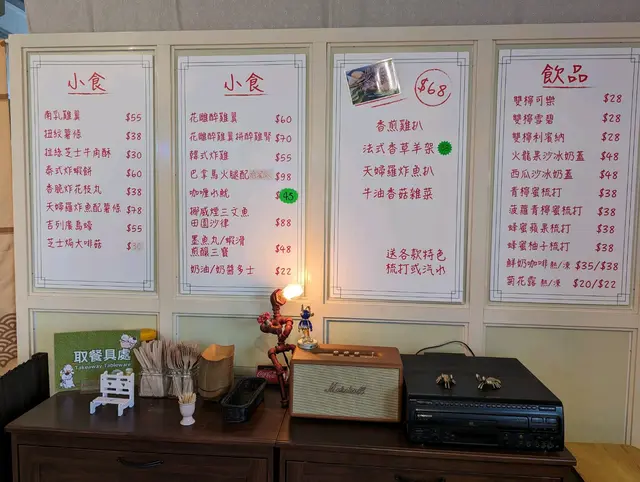 小食
南乳雞翼 $55
扭紋薯條 $38
拉絲芝士牛角酥 $30
泰式炸蝦餅 $60
香脆炸花枝丸 $38
天婦羅炸魚配薯條 $78
吉列廣島蠔 $55
芝士焗大啡菇 $
小食
花雕醉雞翼 $60
花雕醉雞翼拼醉雞腎 $70
韓式炸雞 $55
巴拿馬火腿配 $98
咖喱小魷 45
挪威煙三文魚
田園沙律 $88
墨魚丸/蝦滑
煎釀三寶 $48
奶油/奶醬多士 $22
$68
香煎雞扒
法式香草羊架
天婦羅炸魚扒
牛油香菇雜菜
送各款特色
梳打或汽水
飲品
雙檸可樂 $28
雙檸雪碧 $28
雙檸利賓納 $28
火龍果沙冰奶蓋 $48
西瓜沙冰奶蓋 $48
青檸蜜梳打 $38
菠蘿青檸蜜梳打 $38
蜂蜜蘋果梳打 $38
蜂蜜柚子梳打 $38
鮮奶咖啡 熱/凍 $35/$38
菊花露 熱/凍 $20/$22
取餐具處
Takeaway Tableware
Marshall